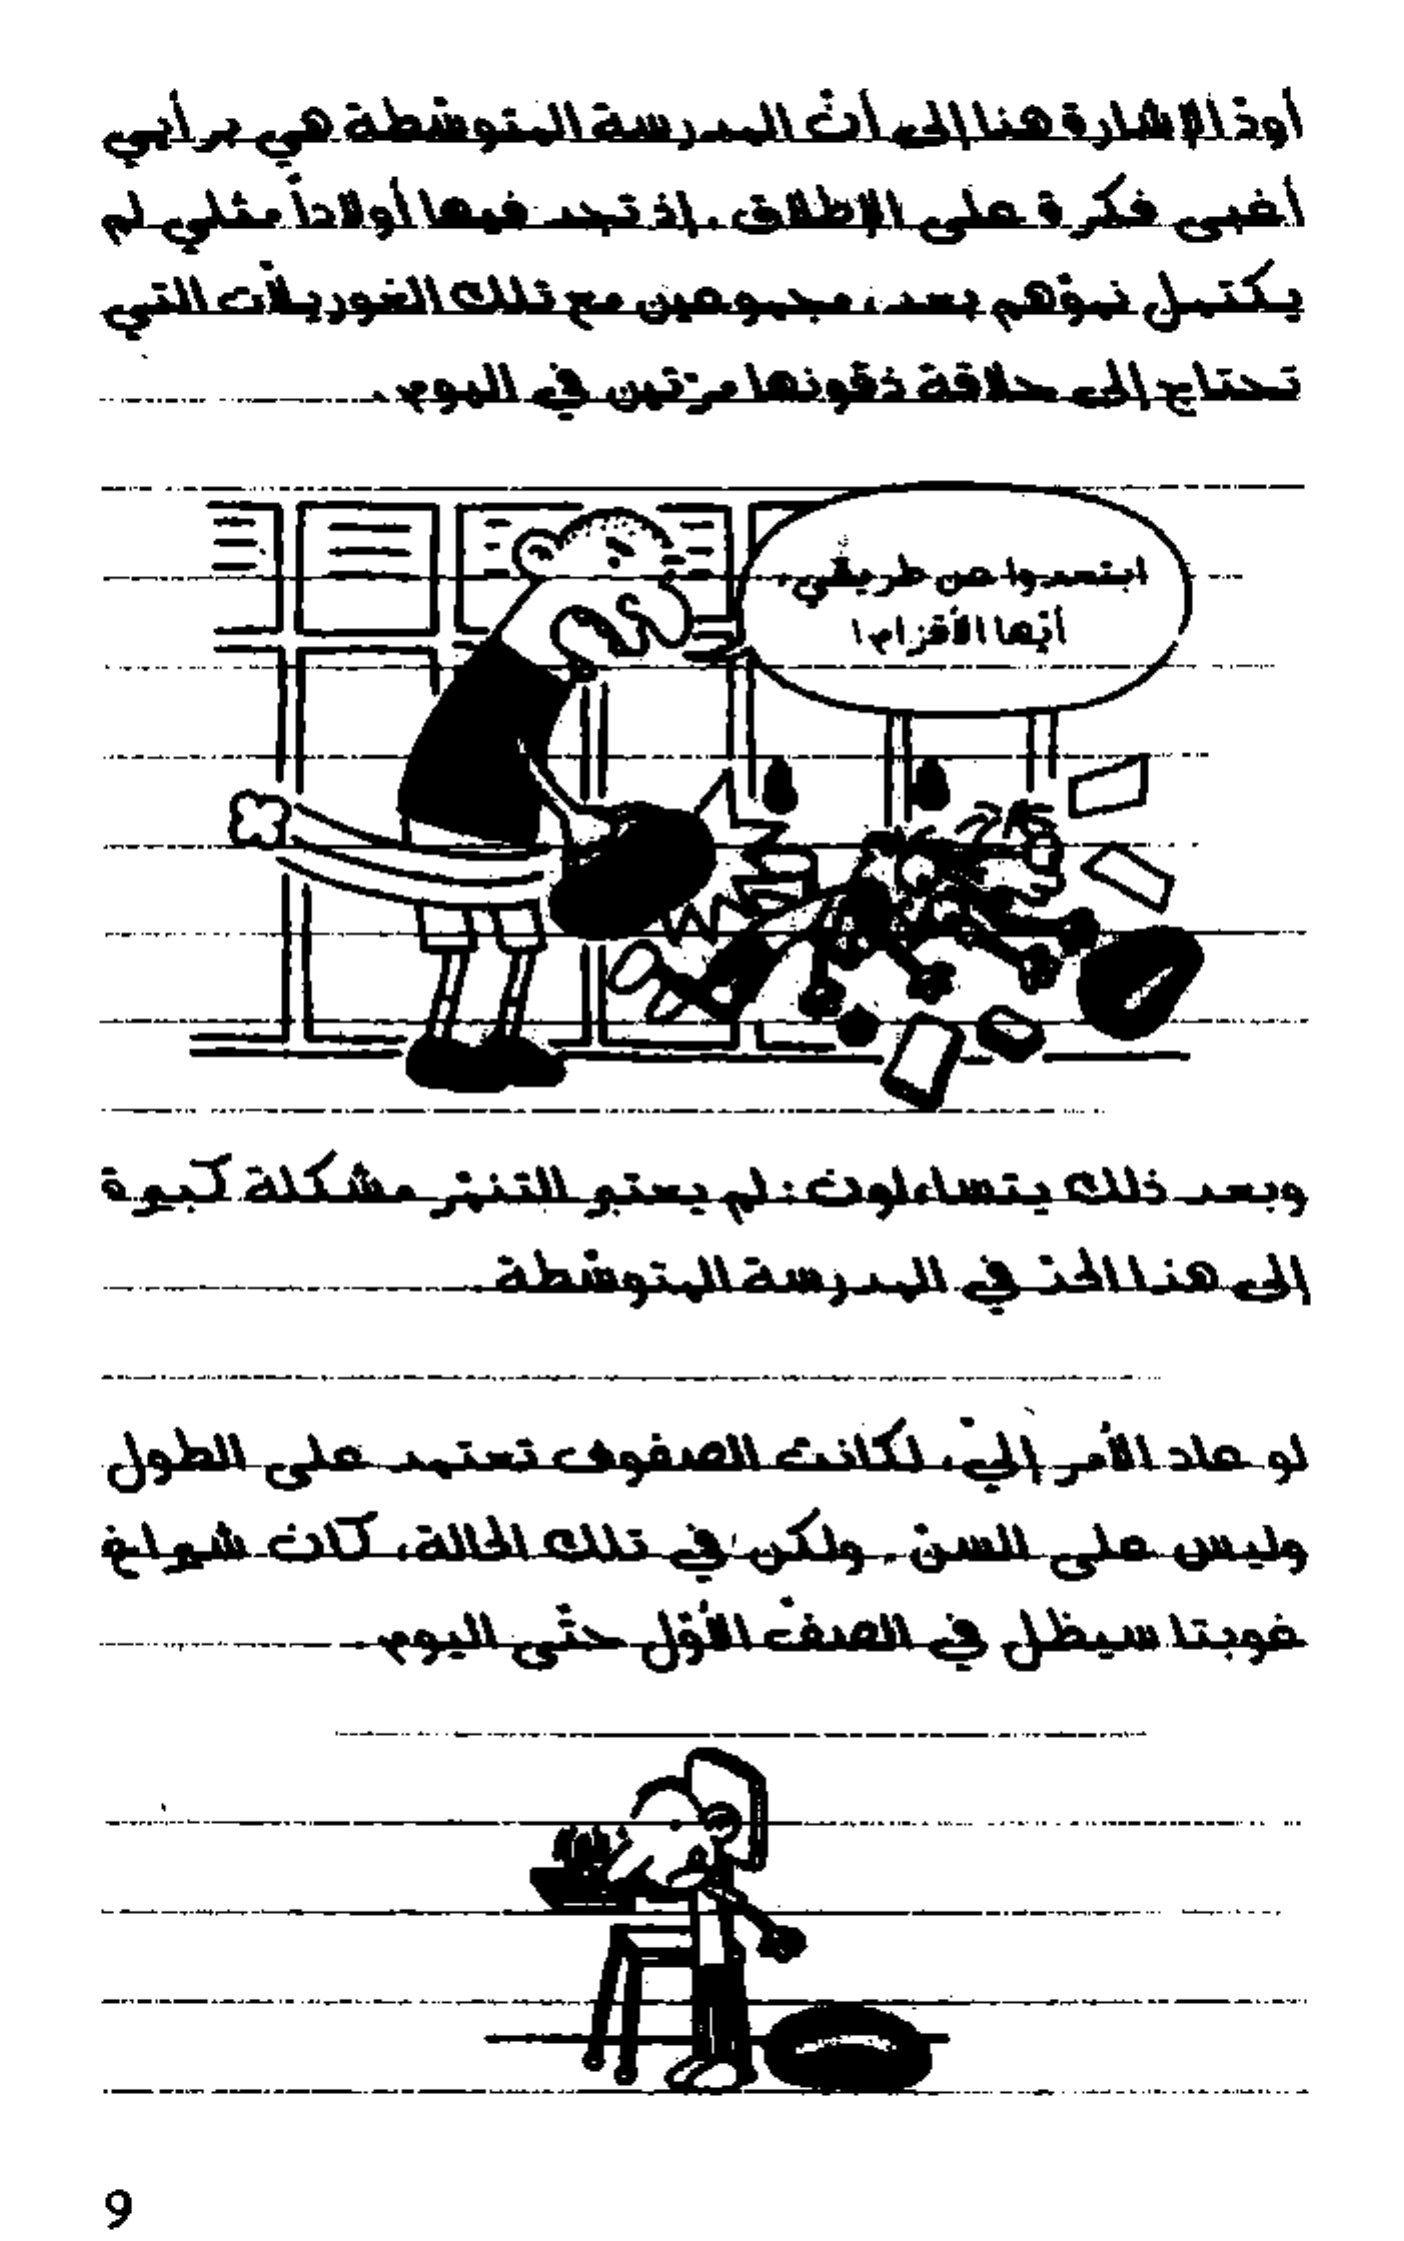 أودّ الإشارة هنا إلى أنّ المدرسة المتوسّطة هي برأيي
أغبى فكرة على الإطلاق. إذ تجد فيها أولاداً مثلي لم
يكتمل نموّهم بعد، مجموعين مع تلك الغوريلّات التي
تحتاج إلى حلاقة ذقونها مرّتين في اليوم.
ابتعدوا عن طريقي،
أيّها الأقزام!
وبعد ذلك يتساءلون: لم يعتبر التنمّر مشكلة كبيرة
إلى هذا الحدّ في المدرسة المتوسّطة.
لو عاد الأمر إليّ، لكانت الصفوف تعتمد على الطول
وليس على السنّ. ولكن في تلك الحالة، كان شيراغ
غوبتا سيظل في الصفّ الأوّل حتّى اليوم.
9